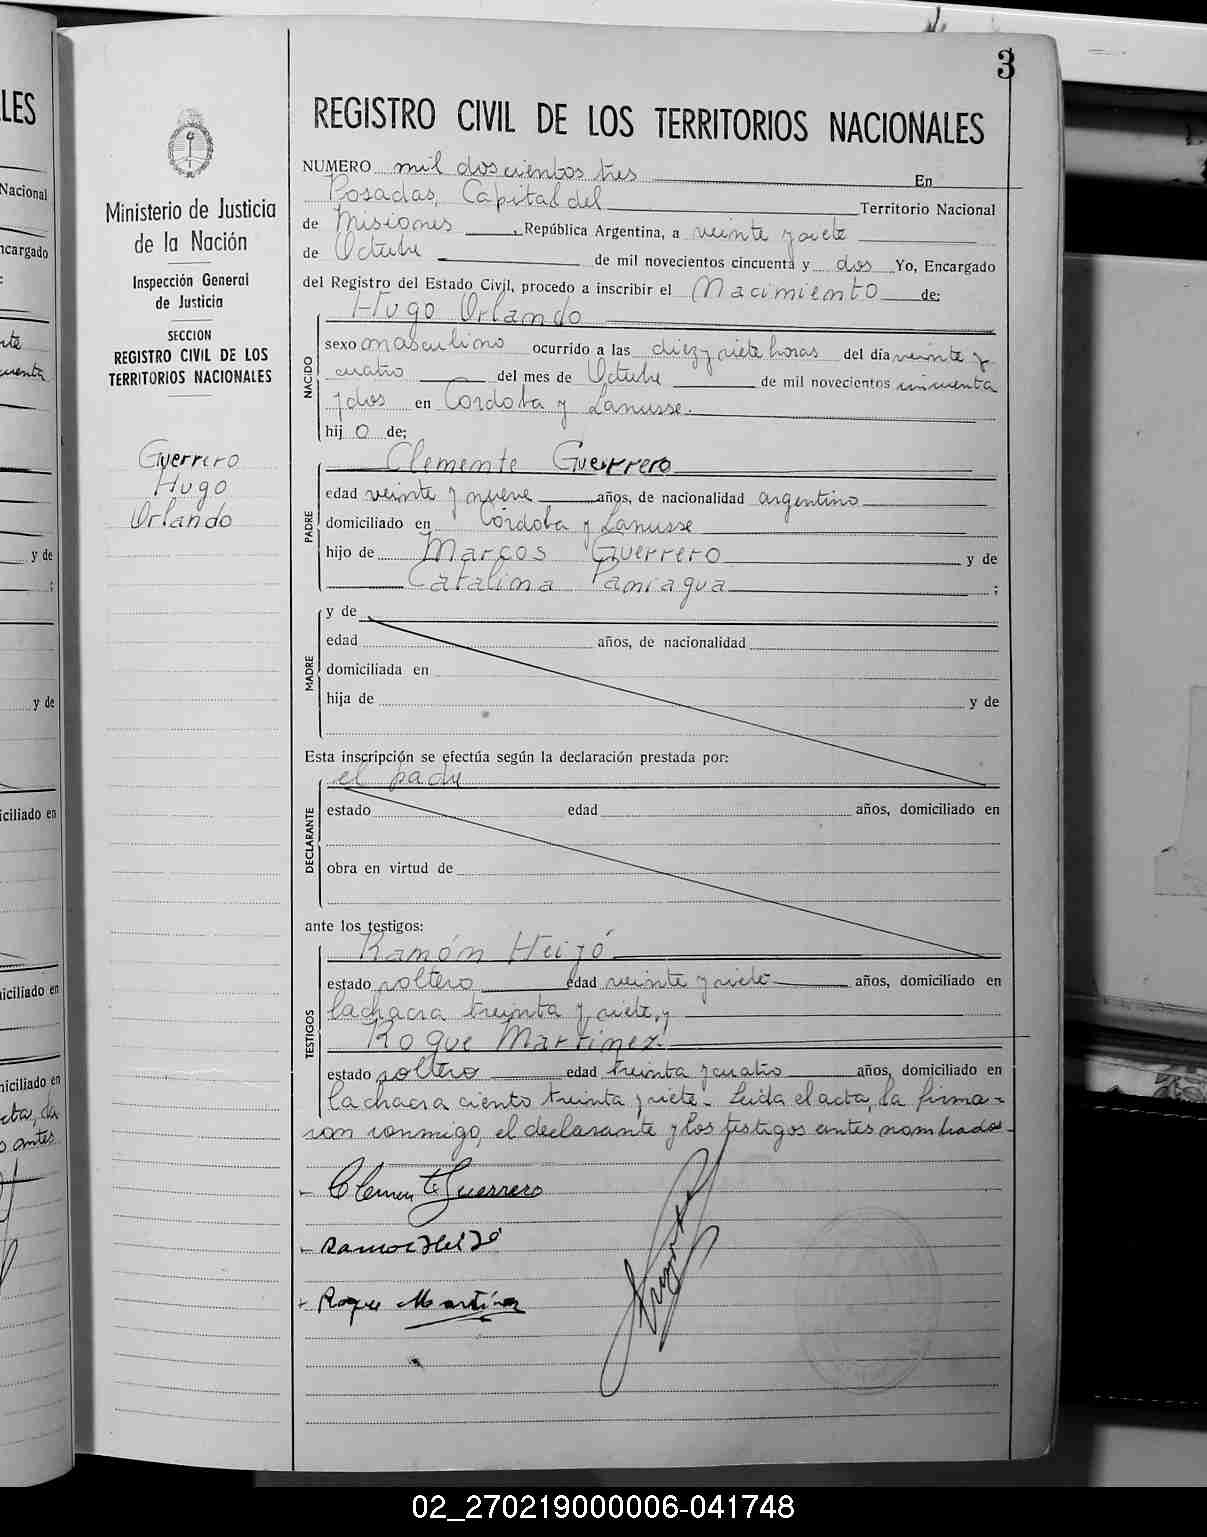 3
REGISTRO CIVIL DE LOS TERRITORIOS NACIONALES
Ministerio de Justicia
de la Nación
Inspección General
de Justicia
SECCION
REGISTRO CIVIL DE LOS
TERRITORIOS NACIONALES
Guerrero
Hugo
Orlando
NUMERO mil doscientos tres En
Posadas, Capital del Territorio Nacional
de Misiones, República Argentina, a veinte y siete
de Octubre de mil novecientos cincuenta y dos Yo, Encargado
del Registro del Estado Civil, procedo a inscribir el Nacimiento de:
Hugo Orlando
NACIDO
sexo masculino ocurrido a las diez y siete horas del día veinte y
cuatro del mes de Octubre de mil novecientos cincuenta
y dos en Córdoba y Lanusse.
hij o de:
Clemente Guerrero
PADRE
edad veinte y nueve años, de nacionalidad argentino
domiciliado en Córdoba y Lanusse
hijo de Marcos Guerrero y de
Catalina Paniagua ;
MADRE
y de
edad años, de nacionalidad
domiciliada en
hija de y de
Esta inscripción se efectúa según la declaración prestada por:
el padre
DECLARANTE
estado edad años, domiciliado en
obra en virtud de
ante los testigos:
Ramón
TESTIGOS
estado soltero edad veinte y siete años, domiciliado en
la chacra treinta y siete, y
Roque Martinez.
estado soltero edad treinta y cuatro años, domiciliado en
la chacra ciento treinta y siete. Leida el acta, la firma-
ron conmigo, el declarante y los testigos antes nombrados.
Clemente Guerrero
Roque Martinez
LES
Nacional
ncargado
y de
;
y de
iciliado en
iciliado en
niciliado en
antes
02_270219000006-041748